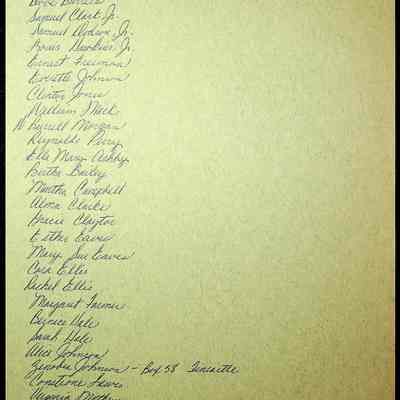 Samuel Clark, Jr.
Samuel Dodson, Jr.
Louis Hawkins, Jr.
Ernest Freeman
Everette Johnson
Clinton Jones
William Mack
Morgan
Reynolds Perry
Ella Mary Ashby
Bertha Bailey
Martha Campbell
Alma Clarke
Gracie Clayton
Esther Eaves
Mary Sue Eaves
Cora Ellis
Rachel Ellis
Margaret Farmer
Bernice Hale
Sarah Hale
Alice Johnson
Zenobia Johnson - Box 58
Constione
Virginia